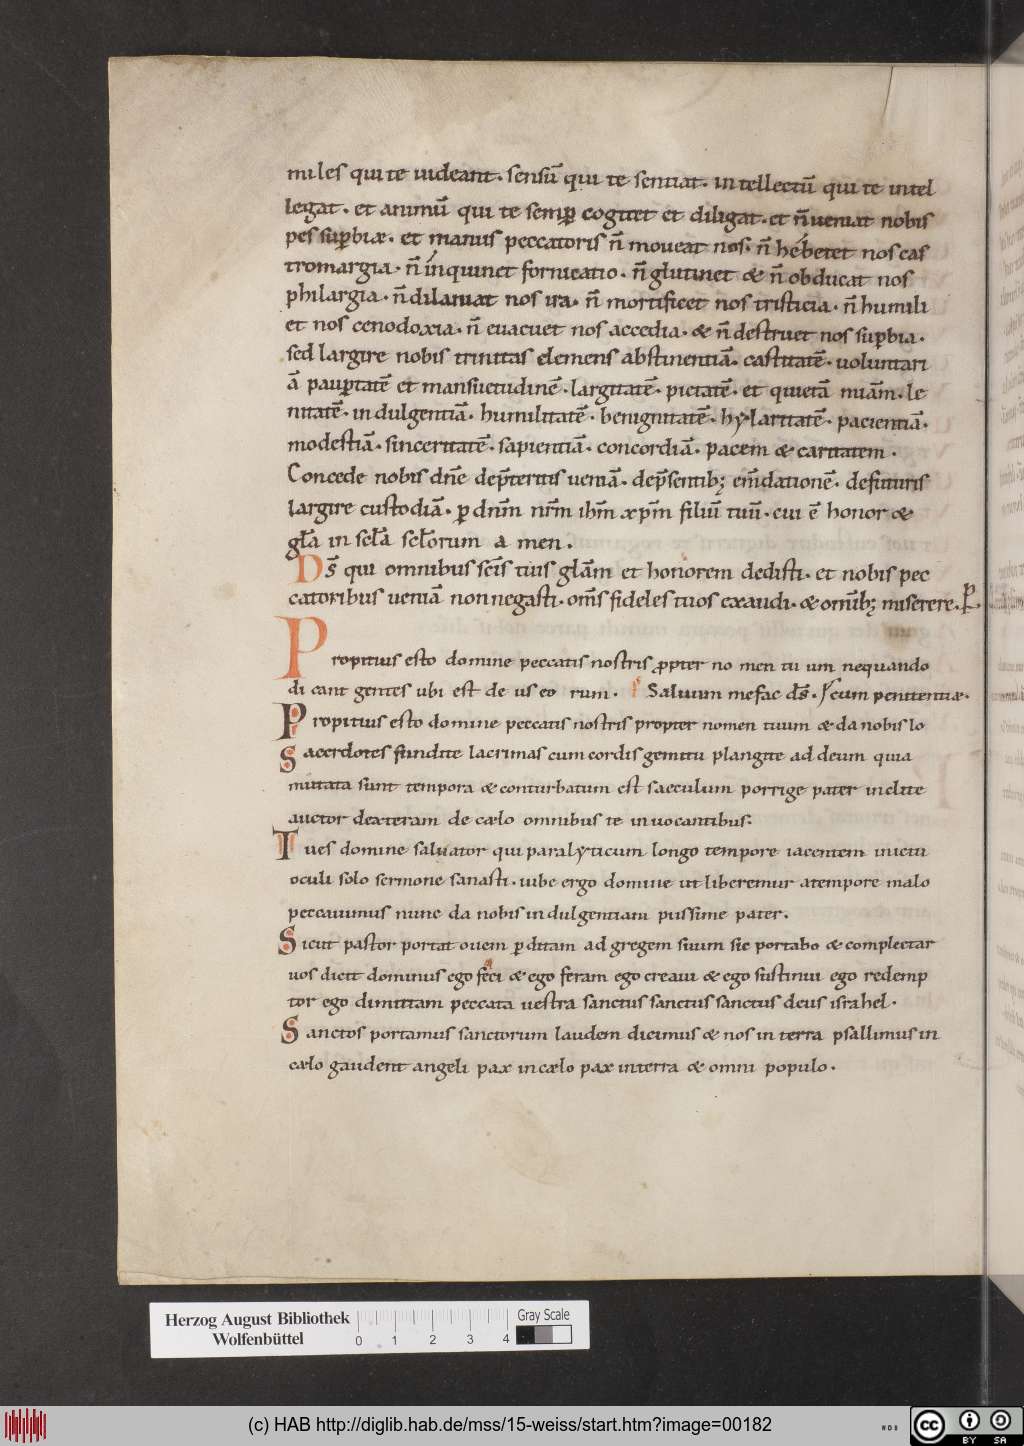 miles qui te uideant. sensū qui te sentiat. intellectū qui te intel
legat. et animū qui te semꝑ cogitet et diligat. et n̄ ueniat nobis
pes suꝑbiæ. et manus peccatoris n̄ moueat nos. n̄ hebetet nos cas
tromargia. n̄ inquinet fornicatio. n̄ glutinet & n̄ obducat nos
philargia. n̄ dilaniat nos ira. n̄ mortificet nos tristicia. n̄ humili
et nos cenodoxia. n̄ euacuet nos accedia. & n̄ destruet nos suꝑbia.
sed largire nobis trinitas clemens abstinentiā. castitatē. uoluntari
ā pauꝑtatē et mansuetudinē. largitatē. pietatē. et quietā miām. le
nitatē. indulgentiā. humilitatē. benignitatē. hylaritatē. pacientiā.
modestiā. sinceritatē. sapientiā. concordiā. pacem & caritatem.
Concede nobis dn̄e dep̄teritis ueniā. dep̄sentibꝫ em̄dationē. defuturis
largire custodiā. ꝑ dnm̄ nr̄m ihm̄ xp̄m filiū tuū. cui ē honor &
gl̄a in scl̄a scl̄orum amen.
Ds̄ qui omnibus sc̄is tuis glām et honorem dedisti. et nobis pec
catoribus ueniā non negasti. om̄s fideles tuos exaudi. & omībꝫ miserere. ꝑ
Propitius esto domine peccatis nostris ꝓpter nomen tuum nequando
dicant gentes ubi est deus eorum. Saluum me fac ds̄. cum penitentiæ.
Propitius esto domine peccatis nostris propter nomen tuum & da nobis lo
Sacerdotes fundite lacrimas cum cordis gemitu plangite ad deum quia
mutata sunt tempora & conturbatum est saeculum porrige pater inclite
auctor dexteram de cælo omnibus te inuocantibus.
Tu es domine saluator qui paralyticum longo tempore iacentem inictu
oculi solo sermone sanasti. iube ergo domine ut liberemur a tempore malo
peccauimus nunc da nobis indulgentiam piissime pater.
Sicut pastor portat ouem ꝑditam ad gregem suum sic portabo & complectar
uos dicit dominus ego feci & ego feram ego creaui & ego sustinui ego redemp
tor ego dimittam peccata uestra sanctus sanctus sanctus deus israhel.
Sanctos portamus sanctorum laudem dicimus & nos in terra psallimus in
cælo gaudent angeli pax in cælo pax in terra & omni populo.
Herzog August Bibliothek
Wolfenbüttel
0 1 2 3 4
Gray Scale
(c) HAB http://diglib.hab.de/mss/15-weiss/start.htm?image=00182
WDB
cc BY SA